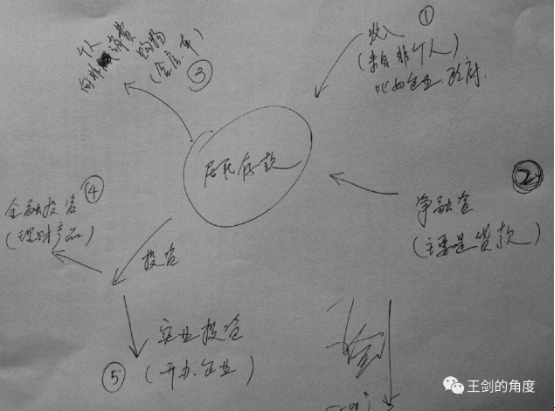 ①
收入
(来自非个人)
比如企业、政府.
个人
向非个人消费 购物
(含房、车)
③
居民存款
②
净融资
(主要是贷款)
④
金融投资
(理财产品)
投资
实业投资
(开办企业)
⑤
王剑的角度